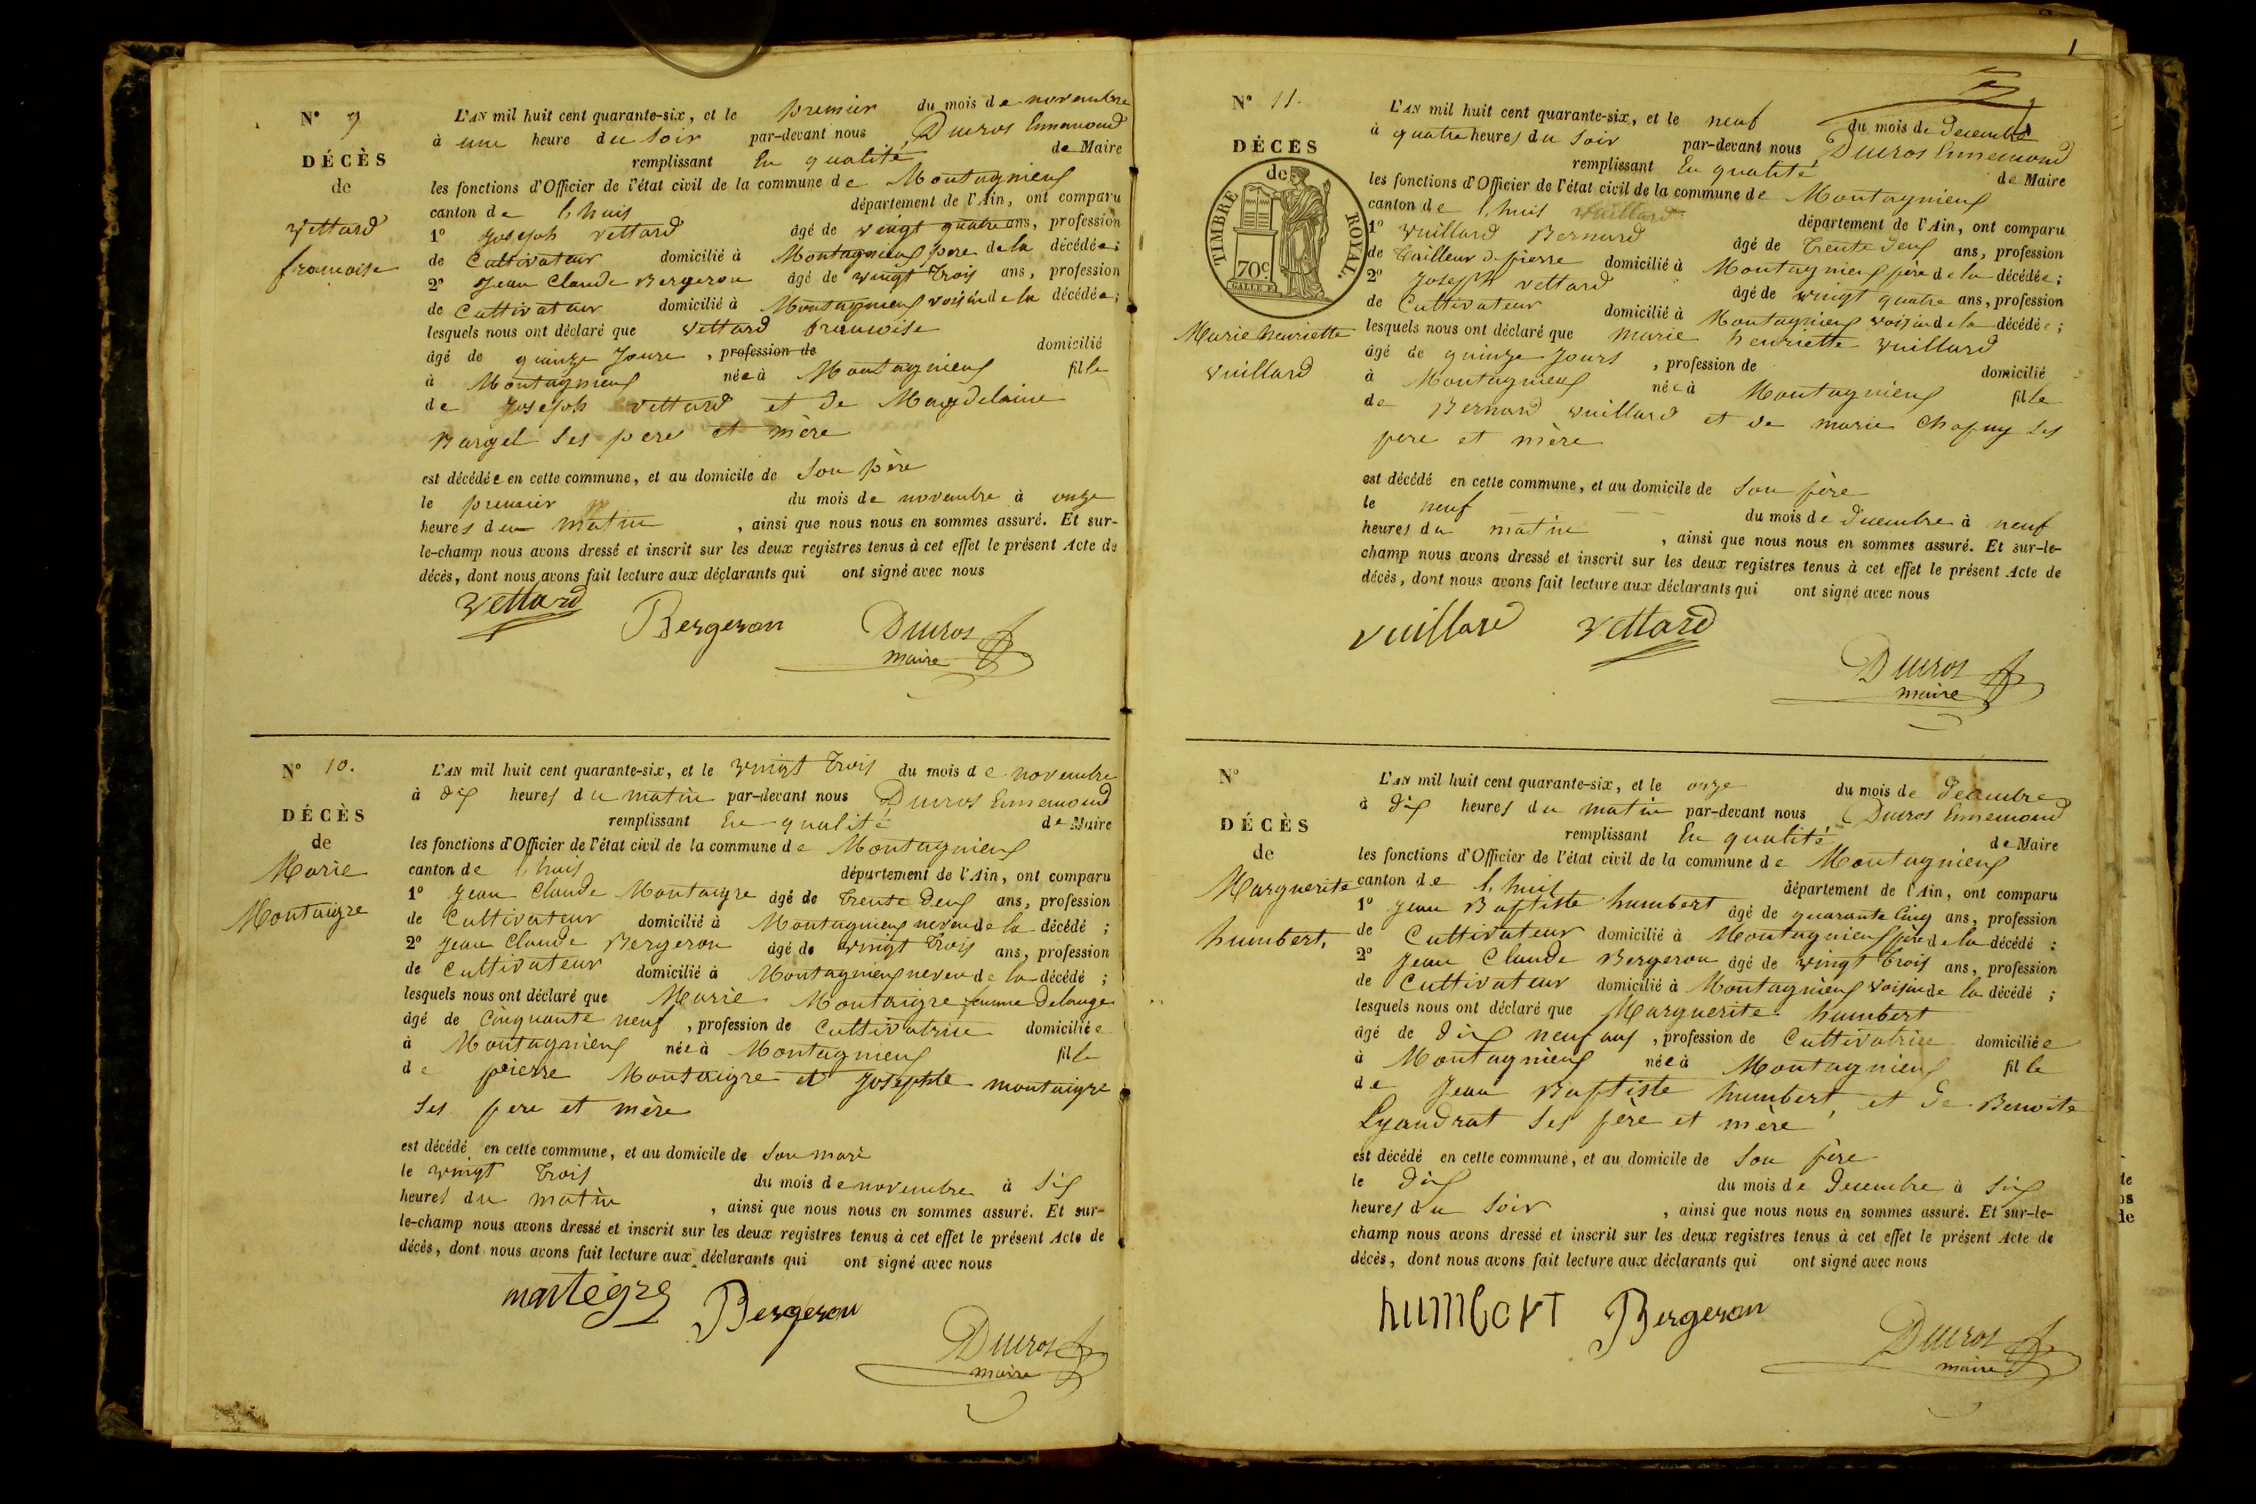 N° 9
DÉCÈS
de
Vettard
francoise
L'AN mil huit cent quarante-six, et le premier du mois de novembre
à une heure du soir par-devant nous Ducros Ennemond
remplissant En qualité de Maire
les fonctions d'Officier de l'état civil de la commune de Montagnieux
canton de Lhuis département de l'Ain, ont comparu
1° Joseph Vettard âgé de vingt quatre ans, profession
de Cultivateur domicilié à Montagnieux père de la décédée;
2° Jean Claude Bergeron âgé de vingt trois ans, profession
de Cultivateur domicilié à Montagnieux voisin de la décédée;
lesquels nous ont déclaré que Vettard francoise
âgé de quinze Jours, profession de domicilié
à Montagnieux née à Montagnieux fille
de Joseph Vettard et de Magdelaine
Bargel ses peres et mère
est décédée en cette commune, et au domicile de son père
le premier du mois de novembre à onze
heures du matin, ainsi que nous nous en sommes assuré. Et sur-
le-champ nous avons dressé et inscrit sur les deux registres tenus à cet effet le présent Acte de
décès, dont nous avons fait lecture aux déclarants qui ont signé avec nous
Vettard Bergeron Ducros
maire
N° 10.
DÉCÈS
de
Marie
Montaigre
L'AN mil huit cent quarante-six, et le vingt trois du mois de novembre
à dix heures du matin par-devant nous Ducros Ennemond
remplissant En qualité de Maire
les fonctions d'Officier de l'état civil de la commune de Montagnieux
canton de Lhuis département de l'Ain, ont comparu
1° Jean Claude Montaigre âgé de trente deux ans, profession
de Cultivateur domicilié à Montagnieux neveu de la décédé ;
2° Jean Claude Bergeron âgé de vingt trois ans, profession
de Cultivateur domicilié à Montagnieux neveu de la décédé ;
lesquels nous ont déclaré que Marie Montaigre femme Delange
âgé de Cinquante neuf, profession de Cultivatrice domiciliée
à Montagnieux née à Montagnieux fille
de pierre Montaigre et Josephte montaigre
ses pere et mère
est décédé en cette commune, et au domicile de son mari
le vingt trois du mois de novembre à six
heures du matin, ainsi que nous nous en sommes assuré. Et sur-
le-champ nous avons dressé et inscrit sur les deux registres tenus à cet effet le présent Acte de
décès, dont nous avons fait lecture aux déclarants qui ont signé avec nous
montegre Bergeron
Ducros
maire
1
N° 11.
DÉCÈS
de
TIMBRE ROYAL.
70c
Marie henriette
Vuillard
L'AN mil huit cent quarante-six, et le neuf du mois de decembre
à quatre heures du soir par-devant nous Ducros Ennemond
remplissant En qualité de Maire
les fonctions d'Officier de l'état civil de la commune de Montagnieux
canton de Lhuis Vuillard département de l'Ain, ont comparu
1° Vuillard Bernard âgé de trente deux ans, profession
de tailleur de pierre domicilié à Montagnieux père de la décédée;
2° Joseph Vettard âgé de vingt quatre ans, profession
de Cultivateur domicilié à Montagnieux voisin de la décédée;
lesquels nous ont déclaré que Marie henriette Vuillard
âgé de quinze Jours, profession de domicilié
à Montagnieux née à Montagnieux fille
de Bernard Vuillard et de marie Chapuy ses
pere et mère
est décédé en cette commune, et au domicile de son père
le neuf du mois de decembre à neuf
heures du matin, ainsi que nous nous en sommes assuré. Et sur-le-
champ nous avons dressé et inscrit sur les deux registres tenus à cet effet le présent Acte de
décès, dont nous avons fait lecture aux déclarants qui ont signé avec nous
Vuillard Vettard
Ducros
maire
N°
DÉCÈS
de
Marguerite
humbert.
L'AN mil huit cent quarante-six, et le onze du mois de decembre
à dix heures du matin par-devant nous Ducros Ennemond
remplissant En qualité de Maire
les fonctions d'Officier de l'état civil de la commune de Montagnieux
canton de Lhuis département de l'Ain, ont comparu
1° Jean Baptiste humbert âgé de quarante cinq ans, profession
de Cultivateur domicilié à Montagnieux père de la décédé ;
2° Jean Claude Bergeron âgé de vingt trois ans, profession
de Cultivateur domicilié à Montagnieux voisin de la décédé ;
lesquels nous ont déclaré que Marguerite humbert
âgé de dix neuf ans, profession de Cultivatrice domiciliée
à Montagnieux née à Montagnieux fille
de Jean Baptiste humbert et de Benoite
Lyaudrat ses père et mère
est décédé en cette commune, et au domicile de son père
le dix du mois de decembre à six
heures du soir, ainsi que nous nous en sommes assuré. Et sur-le-
champ nous avons dressé et inscrit sur les deux registres tenus à cet effet le présent Acte de
décès, dont nous avons fait lecture aux déclarants qui ont signé avec nous
humbert Bergeron
Ducros
maire